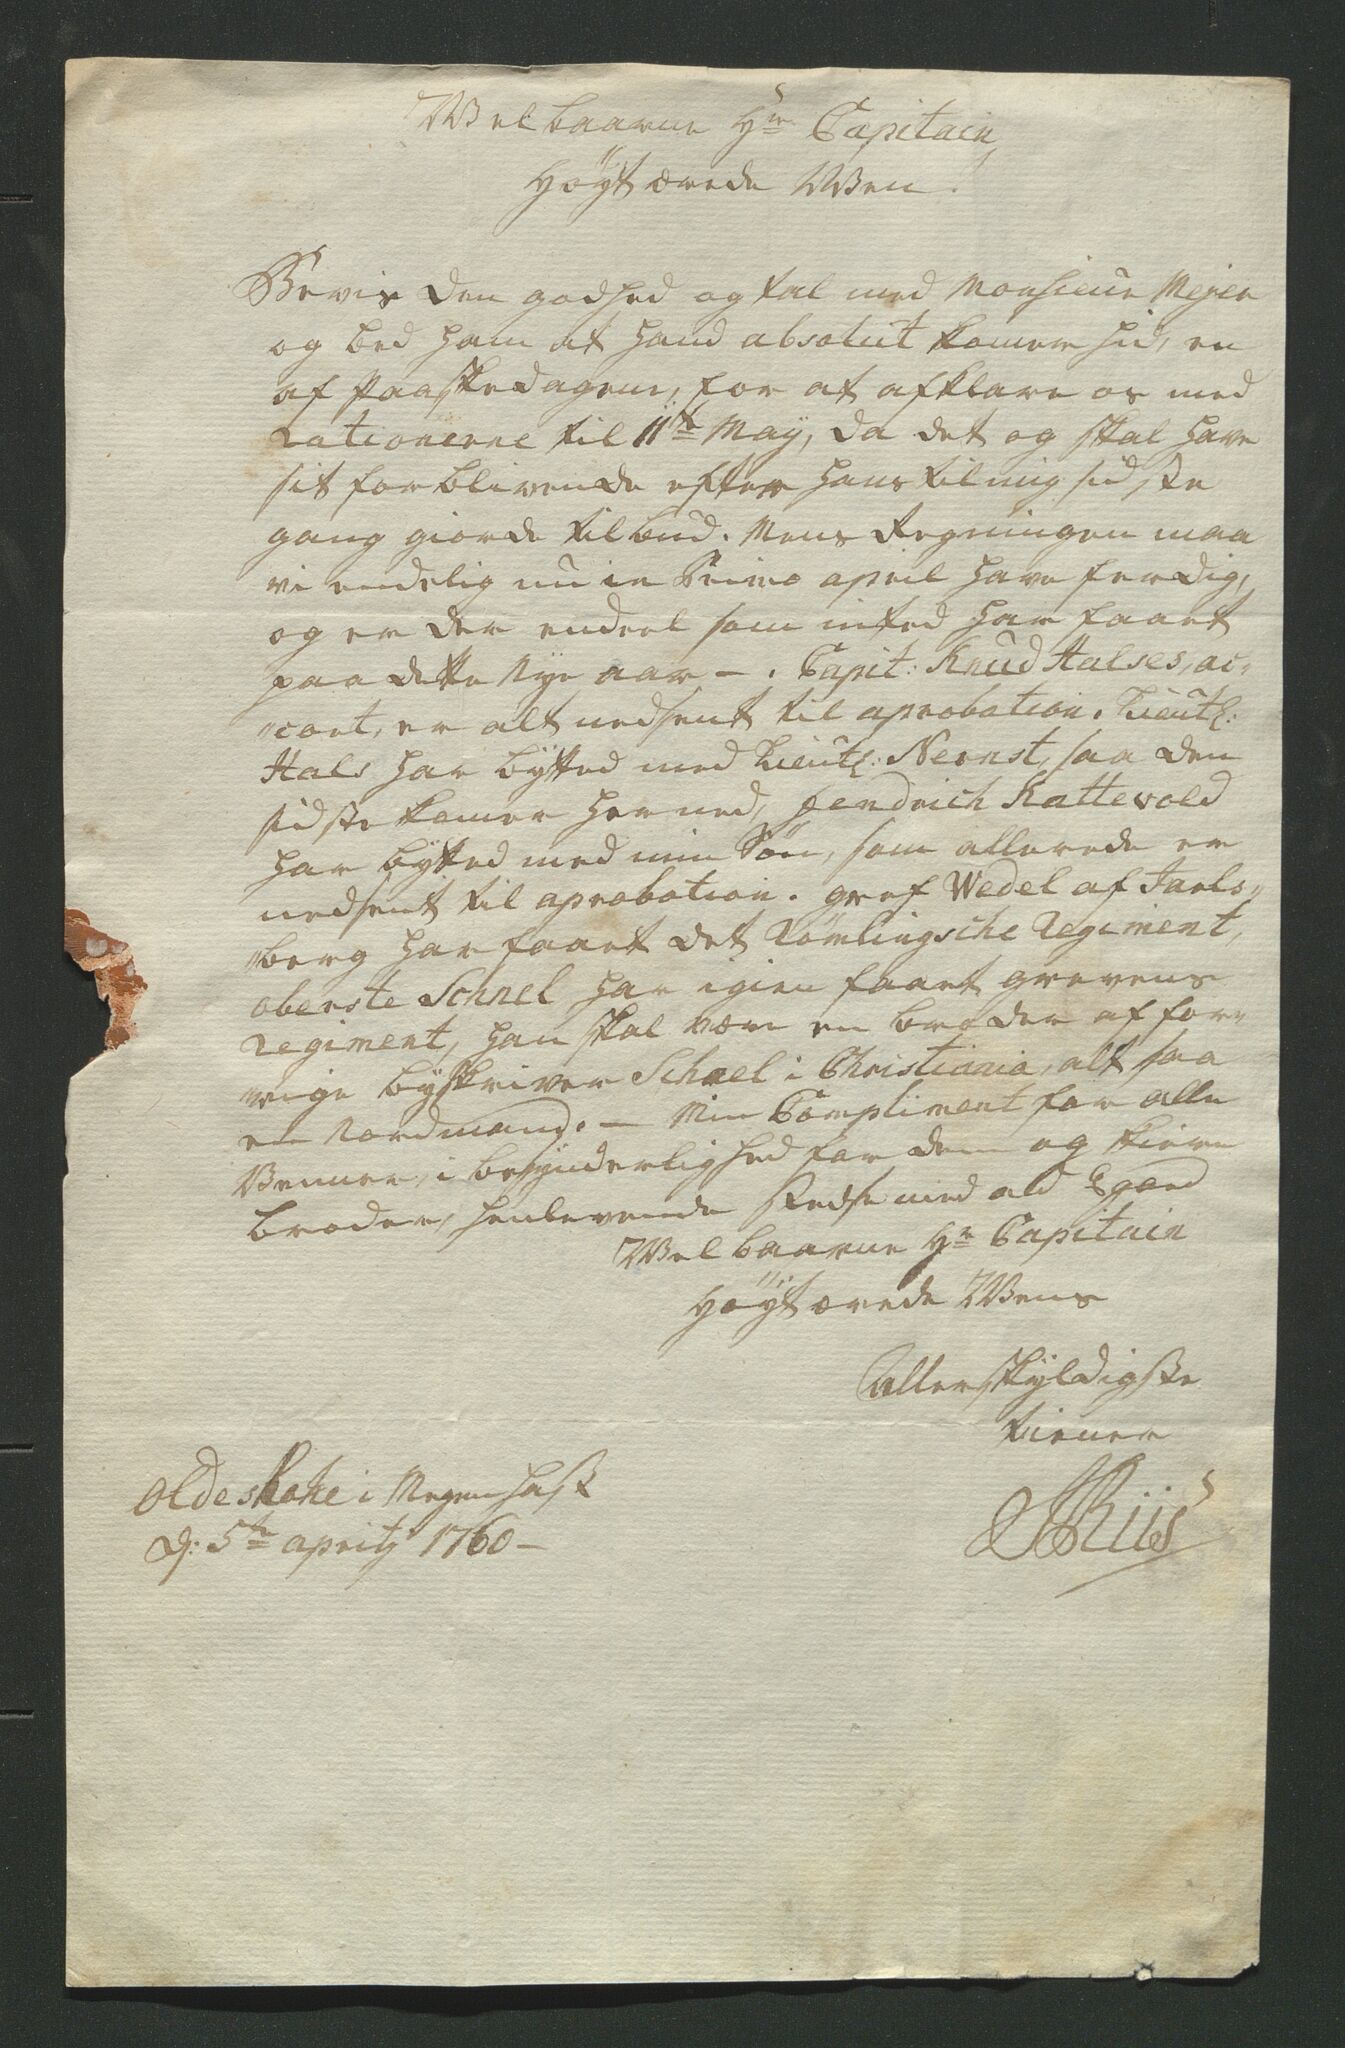 Welbaarne Hr. Capitain,
Høyt ærede Wen!
Beviis den godhed og tal med Monsieur Mejer
og bed ham at hand absolut komer hid, en
af Paaskedagene, for at afklare os med
Rationerne til 11te Maÿ, da det og skal have
sit forblivende efter hans til mig sidste
gang giorde tilbud. Mens Regningen maa
vi endelig nu in Primo april have ferdig,
og er der endeel som inted har faaet
paa dette Nye aar —. Capit: Knud Halses, ac-
cort, er alt nedsent til aprobation. Lieut:
Hals har bÿtted med Lieut: Nernst, saa den
sidste komer herned, Hendrich Kattevold
har bÿtted med min Søn, som allerede er
nedsent til aprobation. gref Wedel af Jarls-
berg har faaet det Römlingsche Regiment,
oberste Schnel har igien faaet grevens
Regiment, han skal være en broder af for-
rige bÿskriver Schnel i Christiania, alt saa
en Nordmand. — Min Compliment for alle
Venner, i besÿnderlighed for dem og kiere
broder, henlevende stedse med ald Egard
Welbaarne Hr Capitain
Høyt ærede Wens
Allerskÿldigste
tiener
Riis
Oldeslohe i Megen hast
d: 5te april 1760 —